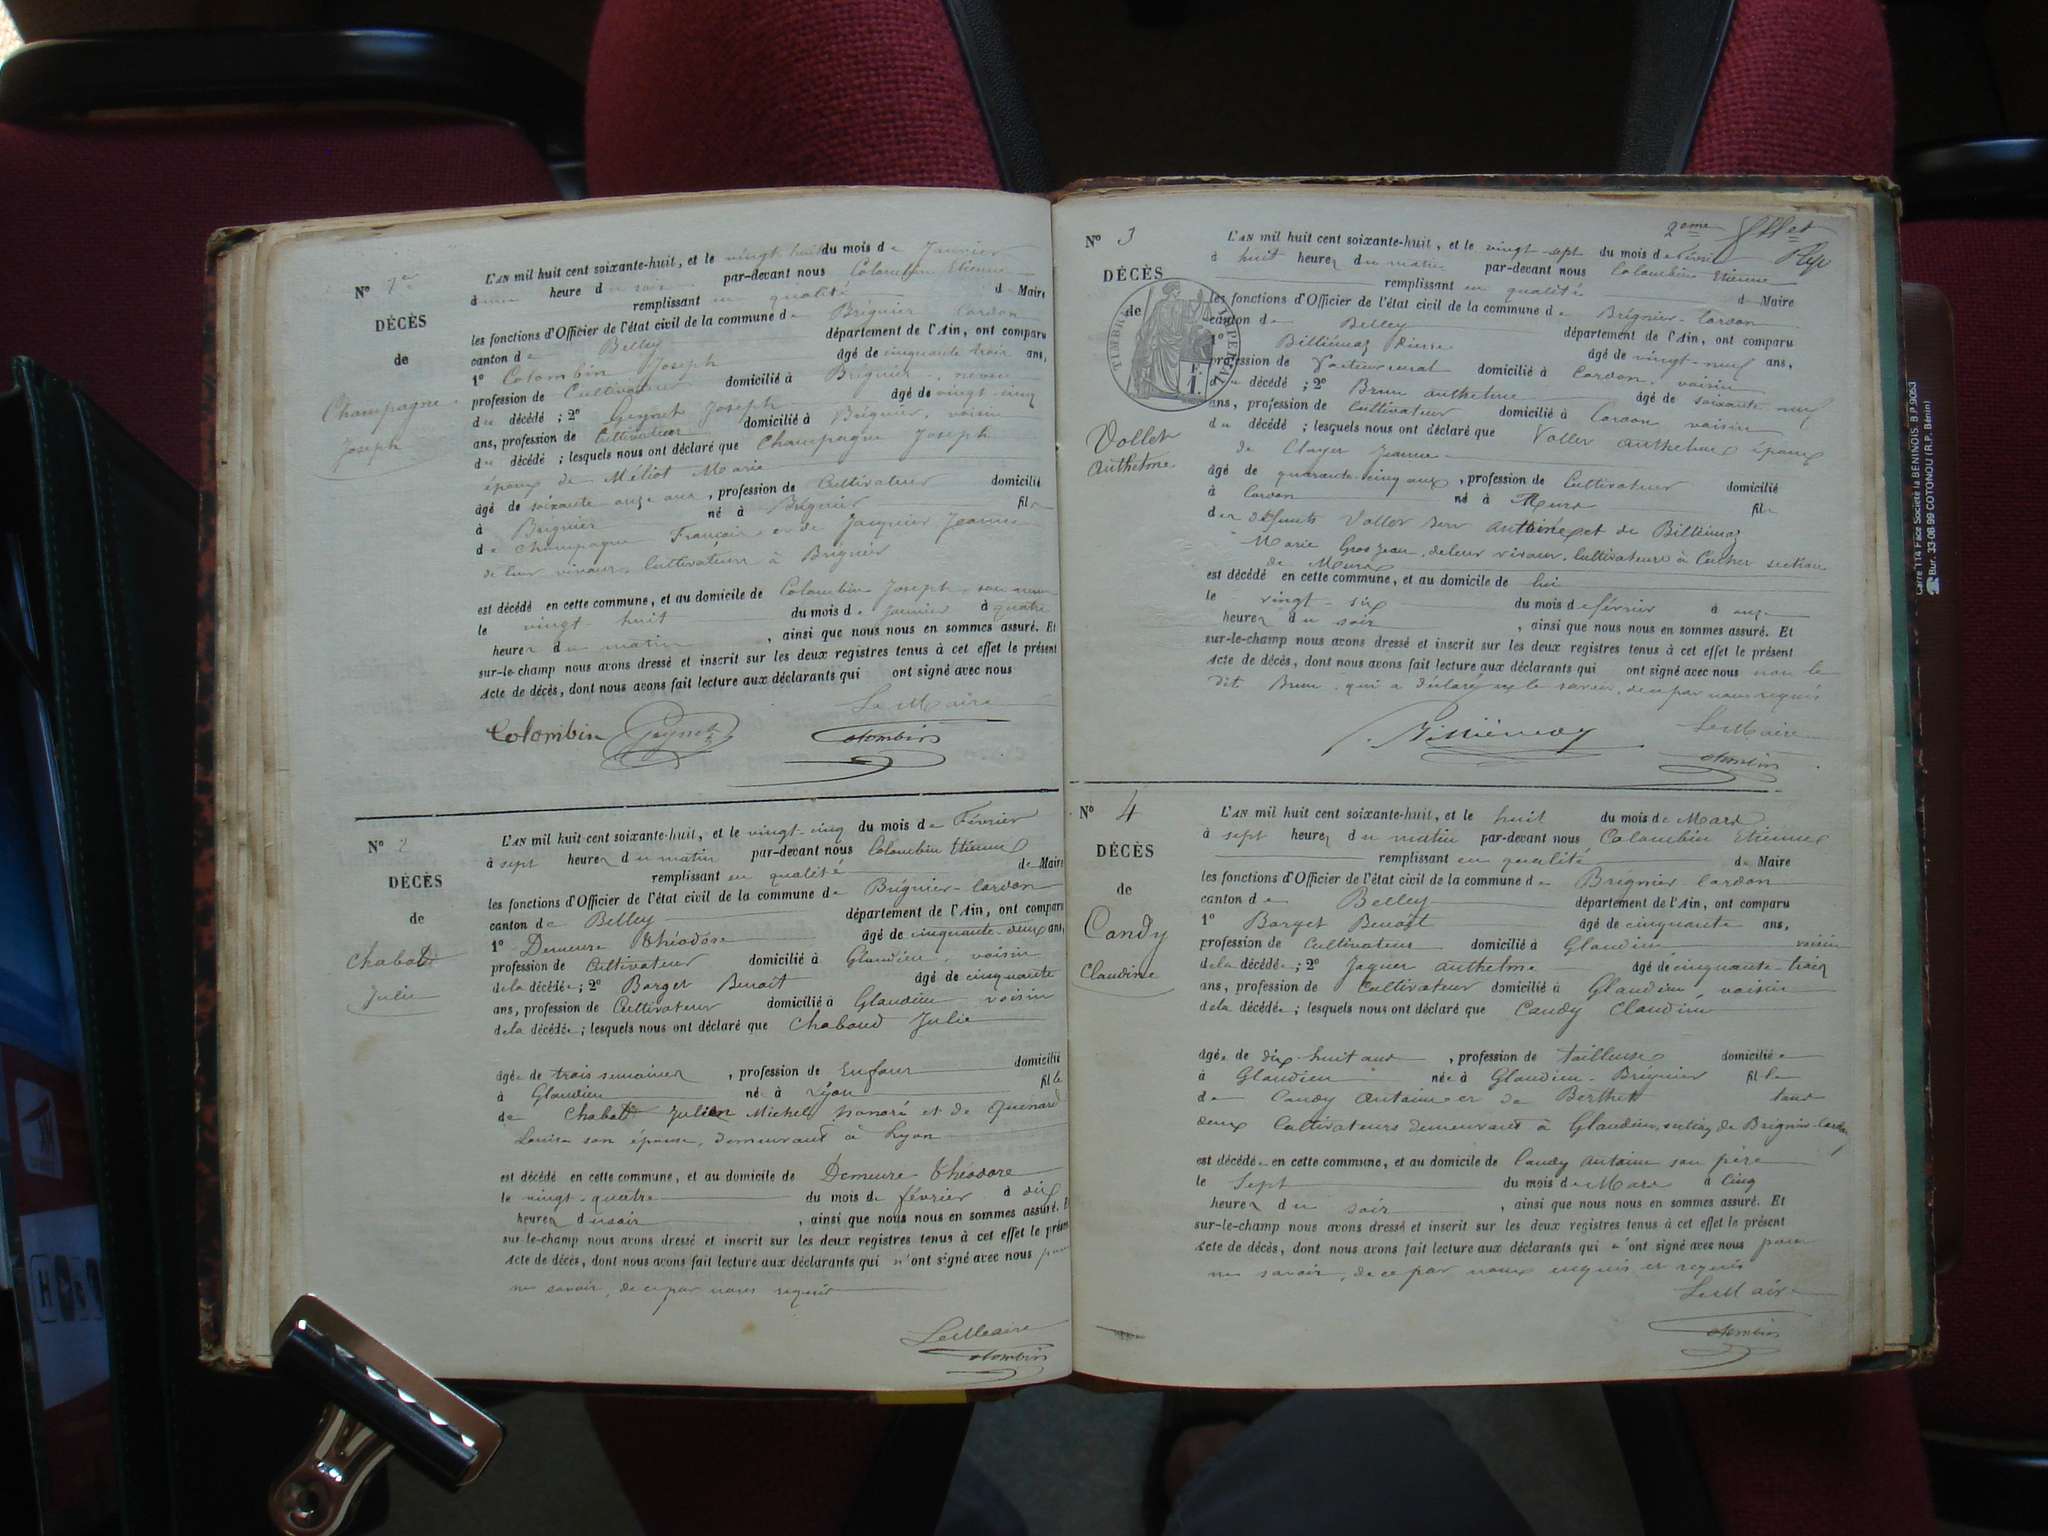 N° 1er
DÉCÈS
de
Champagne
Joseph
L'AN mil huit cent soixante-huit, et le vingt huit du mois de Janvier
à une heure du soir par-devant nous Colombin Etienne
remplissant en qualité de Maire
les fonctions d'Officier de l'état civil de la commune de Brégnier Cordon
canton de Belley département de l'Ain, ont comparu
1° Colombin Joseph âgé de cinquante trois ans,
profession de Cultivateur domicilié à Brégnier, neveu
du décédé ; 2° Geynet Joseph âgé de vingt-cinq
ans, profession de Cultivateur domicilié à Brégnier, voisin
du décédé ; lesquels nous ont déclaré que Champagne Joseph
époux de Méliot Marie
âgé de soixante onze ans, profession de Cultivateur domicilié
à Brégnier né à Brégnier fils
de Champagne François et de Jacquier Jeanne
de leur vivant Cultivateurs à Brégnier
est décédé en cette commune, et au domicile de Colombin Joseph, son neveu
le vingt huit du mois de Janvier à quatre
heures du matin, ainsi que nous nous en sommes assuré. Et
sur-le-champ nous avons dressé et inscrit sur les deux registres tenus à cet effet le présent
Acte de décès, dont nous avons fait lecture aux déclarants qui ont signé avec nous
Le Maire
Colombin Geynet Colombin
N° 2
DÉCÈS
de
Chabod
Julie
L'AN mil huit cent soixante-huit, et le vingt-cinq du mois de Février
à sept heures du matin par-devant nous Colombin Etienne
remplissant en qualité de Maire
les fonctions d'Officier de l'état civil de la commune de Brégnier-Cordon
canton de Belley département de l'Ain, ont comparu
1° Demeure Théodore âgé de cinquante-deux ans,
profession de Cultivateur domicilié à Glandieu, voisin
de la décédée ; 2° Barget Benoît âgé de cinquante
ans, profession de Cultivateur domicilié à Glandieu voisin
de la décédée ; lesquels nous ont déclaré que Chaboud Julie
âgée de trois semaines, profession de Enfant domicilié
à Glandieu né à Lyon fille
de Chabod Julien Michel honoré et de Quénard
Louise son épouse, demeurant à Lyon
est décédé en cette commune, et au domicile de Demeure Théodore
le vingt-quatre du mois de février à dix
heures du soir, ainsi que nous nous en sommes assuré. Et
sur-le-champ nous avons dressé et inscrit sur les deux registres tenus à cet effet le présent
Acte de décès, dont nous avons fait lecture aux déclarants qui n'ont signé avec nous pour
ne savoir, de ce par nous requis
Le Maire
Colombin
2eme fllet
N° 3
DÉCÈS
de
TIMBRE IMPÉRIAL
Vollet
Anthelme
L'AN mil huit cent soixante-huit, et le vingt-sept du mois de Février
à huit heures du matin par-devant nous Colombin Etienne
remplissant en qualité de Maire
les fonctions d'Officier de l'état civil de la commune de Brégnier-Cordon
canton de Belley département de l'Ain, ont comparu
1° Billiémaz Pierre âgé de vingt-neuf ans,
profession de Facteur rural domicilié à Cordon, voisin
du décédé ; 2° Brun Anthelme âgé de soixante neuf
ans, profession de Cultivateur domicilié à Cordon voisin
du décédé ; lesquels nous ont déclaré que Vollet Anthelme époux
de Jeanne
âgé de quarante cinq ans, profession de Cultivateur domicilié
à Cordon né à Murs fils
des défunts Vollet Antoine et de Billiémaz
Marie Grosjean, de leur vivant, Cultivateurs à section
de Murs
est décédé en cette commune, et au domicile de lui
le vingt-six du mois de février à onze
heures du soir, ainsi que nous nous en sommes assuré. Et
sur-le-champ nous avons dressé et inscrit sur les deux registres tenus à cet effet le présent
Acte de décès, dont nous avons fait lecture aux déclarants qui ont signé avec nous non le
dit Brun, qui a déclaré ne le savoir, de ce par nous requis
Le Maire
Billiémaz Colombin
N° 4
DÉCÈS
de
Candy
Claudine
L'AN mil huit cent soixante-huit, et le huit du mois de Mars
à sept heures du matin par-devant nous Colombin Etienne
remplissant en qualité de Maire
les fonctions d'Officier de l'état civil de la commune de Brégnier-Cordon
canton de Belley département de l'Ain, ont comparu
1° Barget Benoît âgé de cinquante ans,
profession de Cultivateur domicilié à Glandieu voisin
de la décédée ; 2° Jaquer Anthelme âgé de cinquante-trois
ans, profession de Cultivateur domicilié à Glandieu voisin
de la décédée ; lesquels nous ont déclaré que Candy Claudine
âgée de dix-huit ans, profession de tailleuse domiciliée
à Glandieu née à Glandieu-Brégnier fille
de Candy Antoine et de Berthet tous
deux Cultivateurs demeurant à Glandieu, section de Brégnier-Cordon
est décédée en cette commune, et au domicile de Candy Antoine son père
le Sept du mois de Mars à Cinq
heures du soir, ainsi que nous nous en sommes assuré. Et
sur-le-champ nous avons dressé et inscrit sur les deux registres tenus à cet effet le présent
Acte de décès, dont nous avons fait lecture aux déclarants qui n'ont signé avec nous pour
ne savoir, de ce par nous enquis et requis
Le Maire
Colombin
Carré 114 Face Société la BENINOIS. B.P. 9053
Bur. 33-06 99 COTONOU (R.P. Bénin)